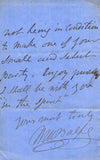 not being in condition
to make one of your
small and select
party – enjoy
I shall be with you
in the spirit
yours most truly
MWBalfe